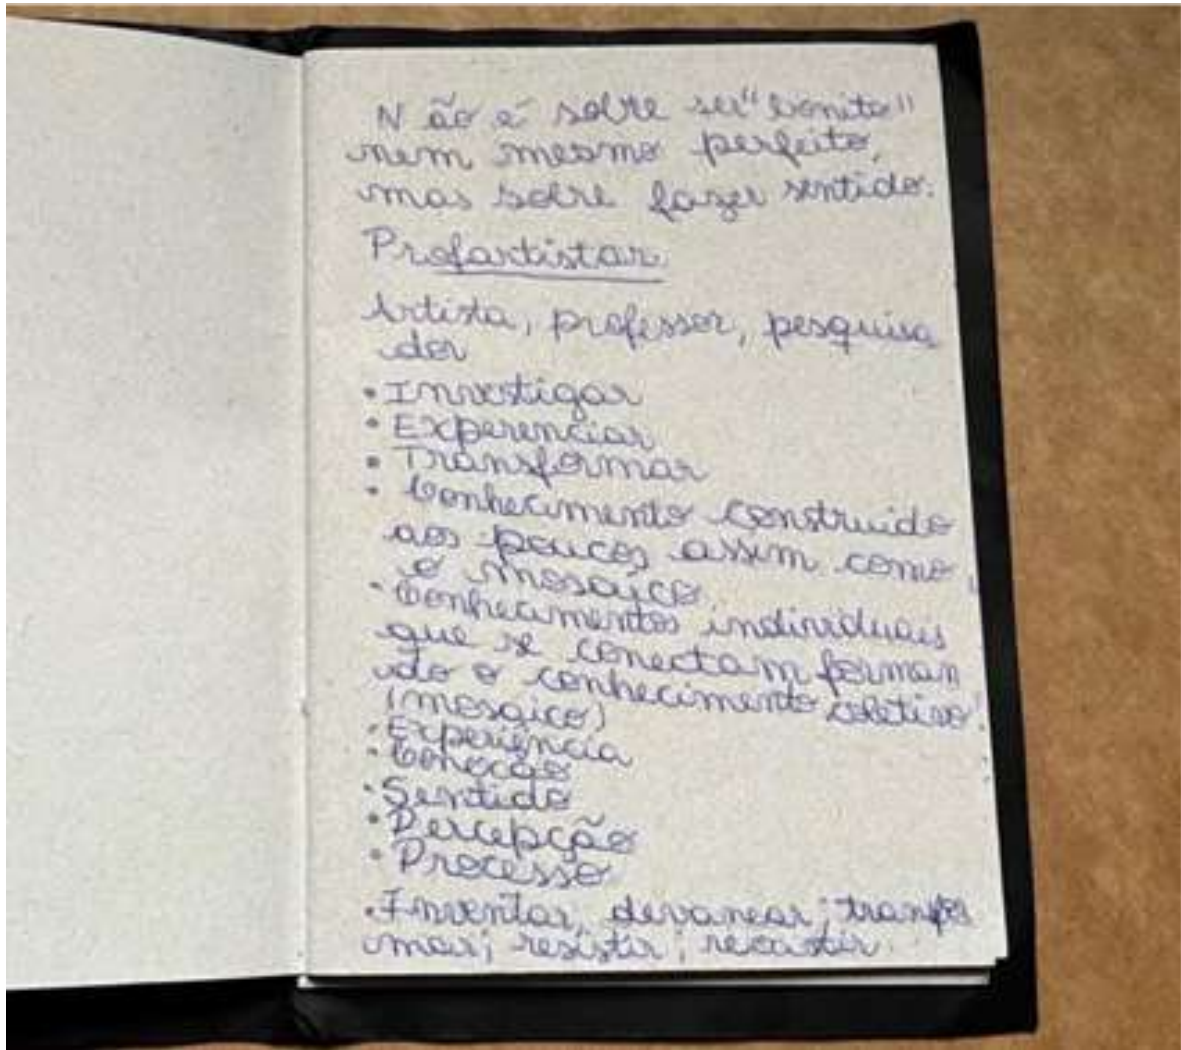 Não é sobre ser "bonito"
nem mesmo perfeito,
mas sobre fazer sentido.
Profartistar
Artista, professor, pesquisa
dor
• Investigar
• Experenciar
• Transformar
• Conhecimento construido
aos poucos assim como
o mosaico.
• Conhecimentos individuais
que se conectam forman
do o conhecimento coletivo.
(mosaico)
• Experiência
•
• Sentido
• Percepção
• Processo
• Inventar, devanear; transfor
mar; resistir;